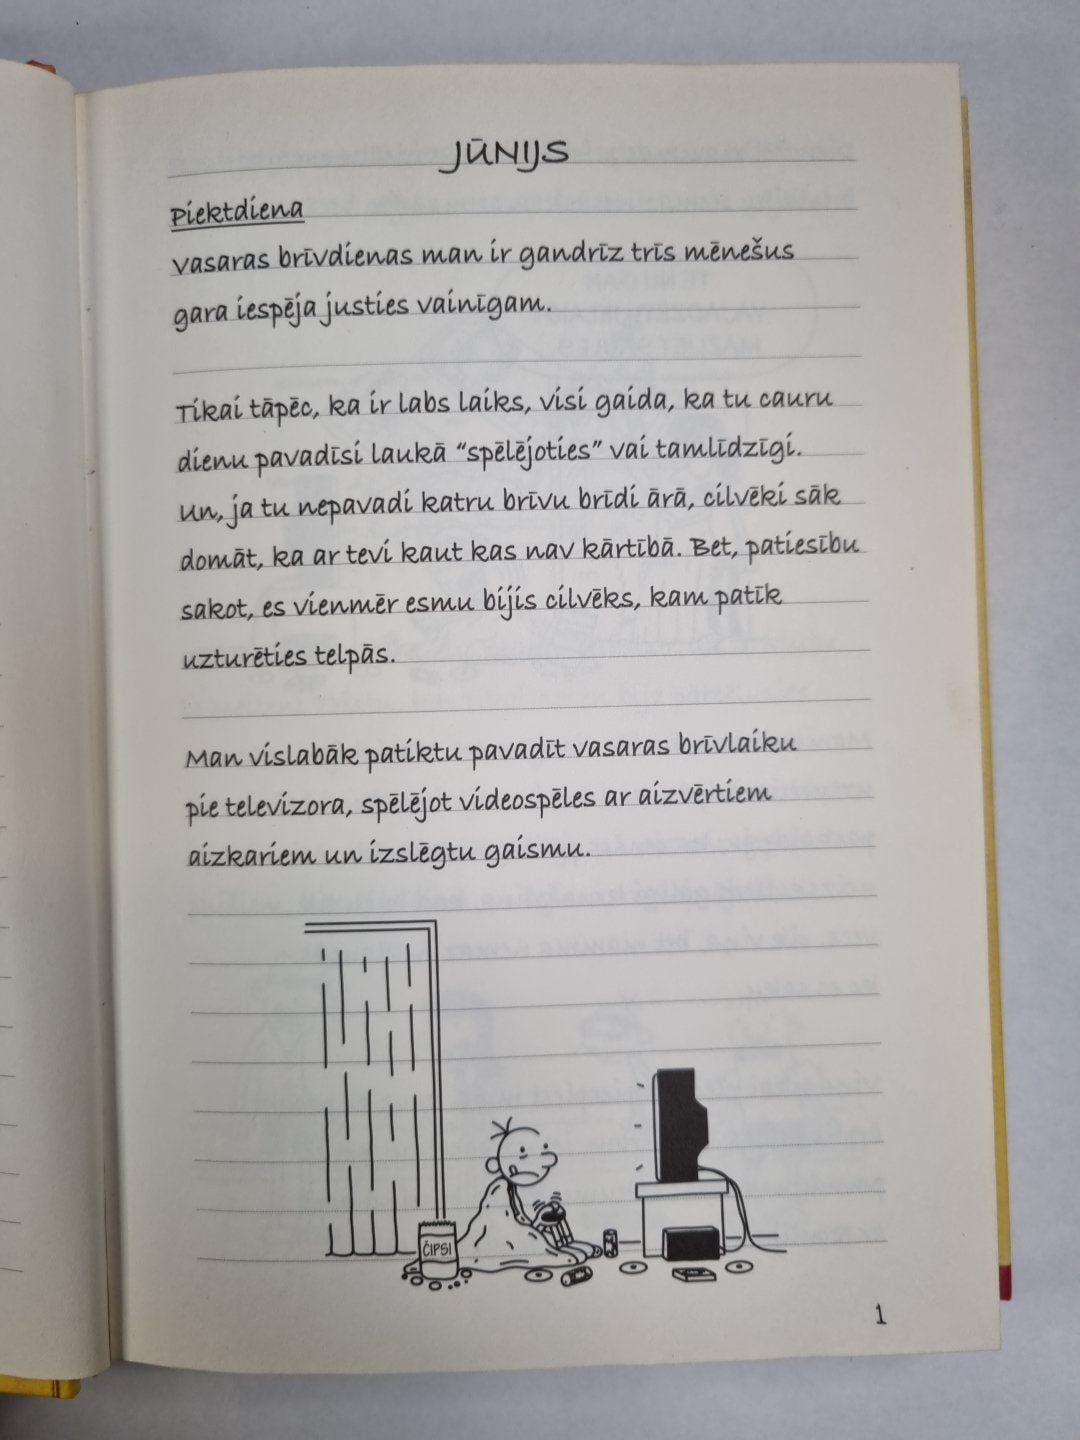 JŪNIJS
Piektdiena
Vasaras brīvdienas man ir gandrīz trīs mēnešus
gara iespēja justies vainīgam.
Tikai tāpēc, ka ir labs laiks, visi gaida, ka tu cauru
dienu pavadīsi laukā “spēlējoties” vai tamlīdzīgi.
Un, ja tu nepavadi katru brīvu brīdi ārā, cilvēki sāk
domāt, ka ar tevi kaut kas nav kārtībā. Bet, patiesību
sakot, es vienmēr esmu bijis cilvēks, kam patīk
uzturēties telpās.
Man vislabāk patiktu pavadīt vasaras brīvlaiku
pie televizora, spēlējot videospēles ar aizvērtiem
aizkariem un izslēgtu gaismu.
ČIPSI
1